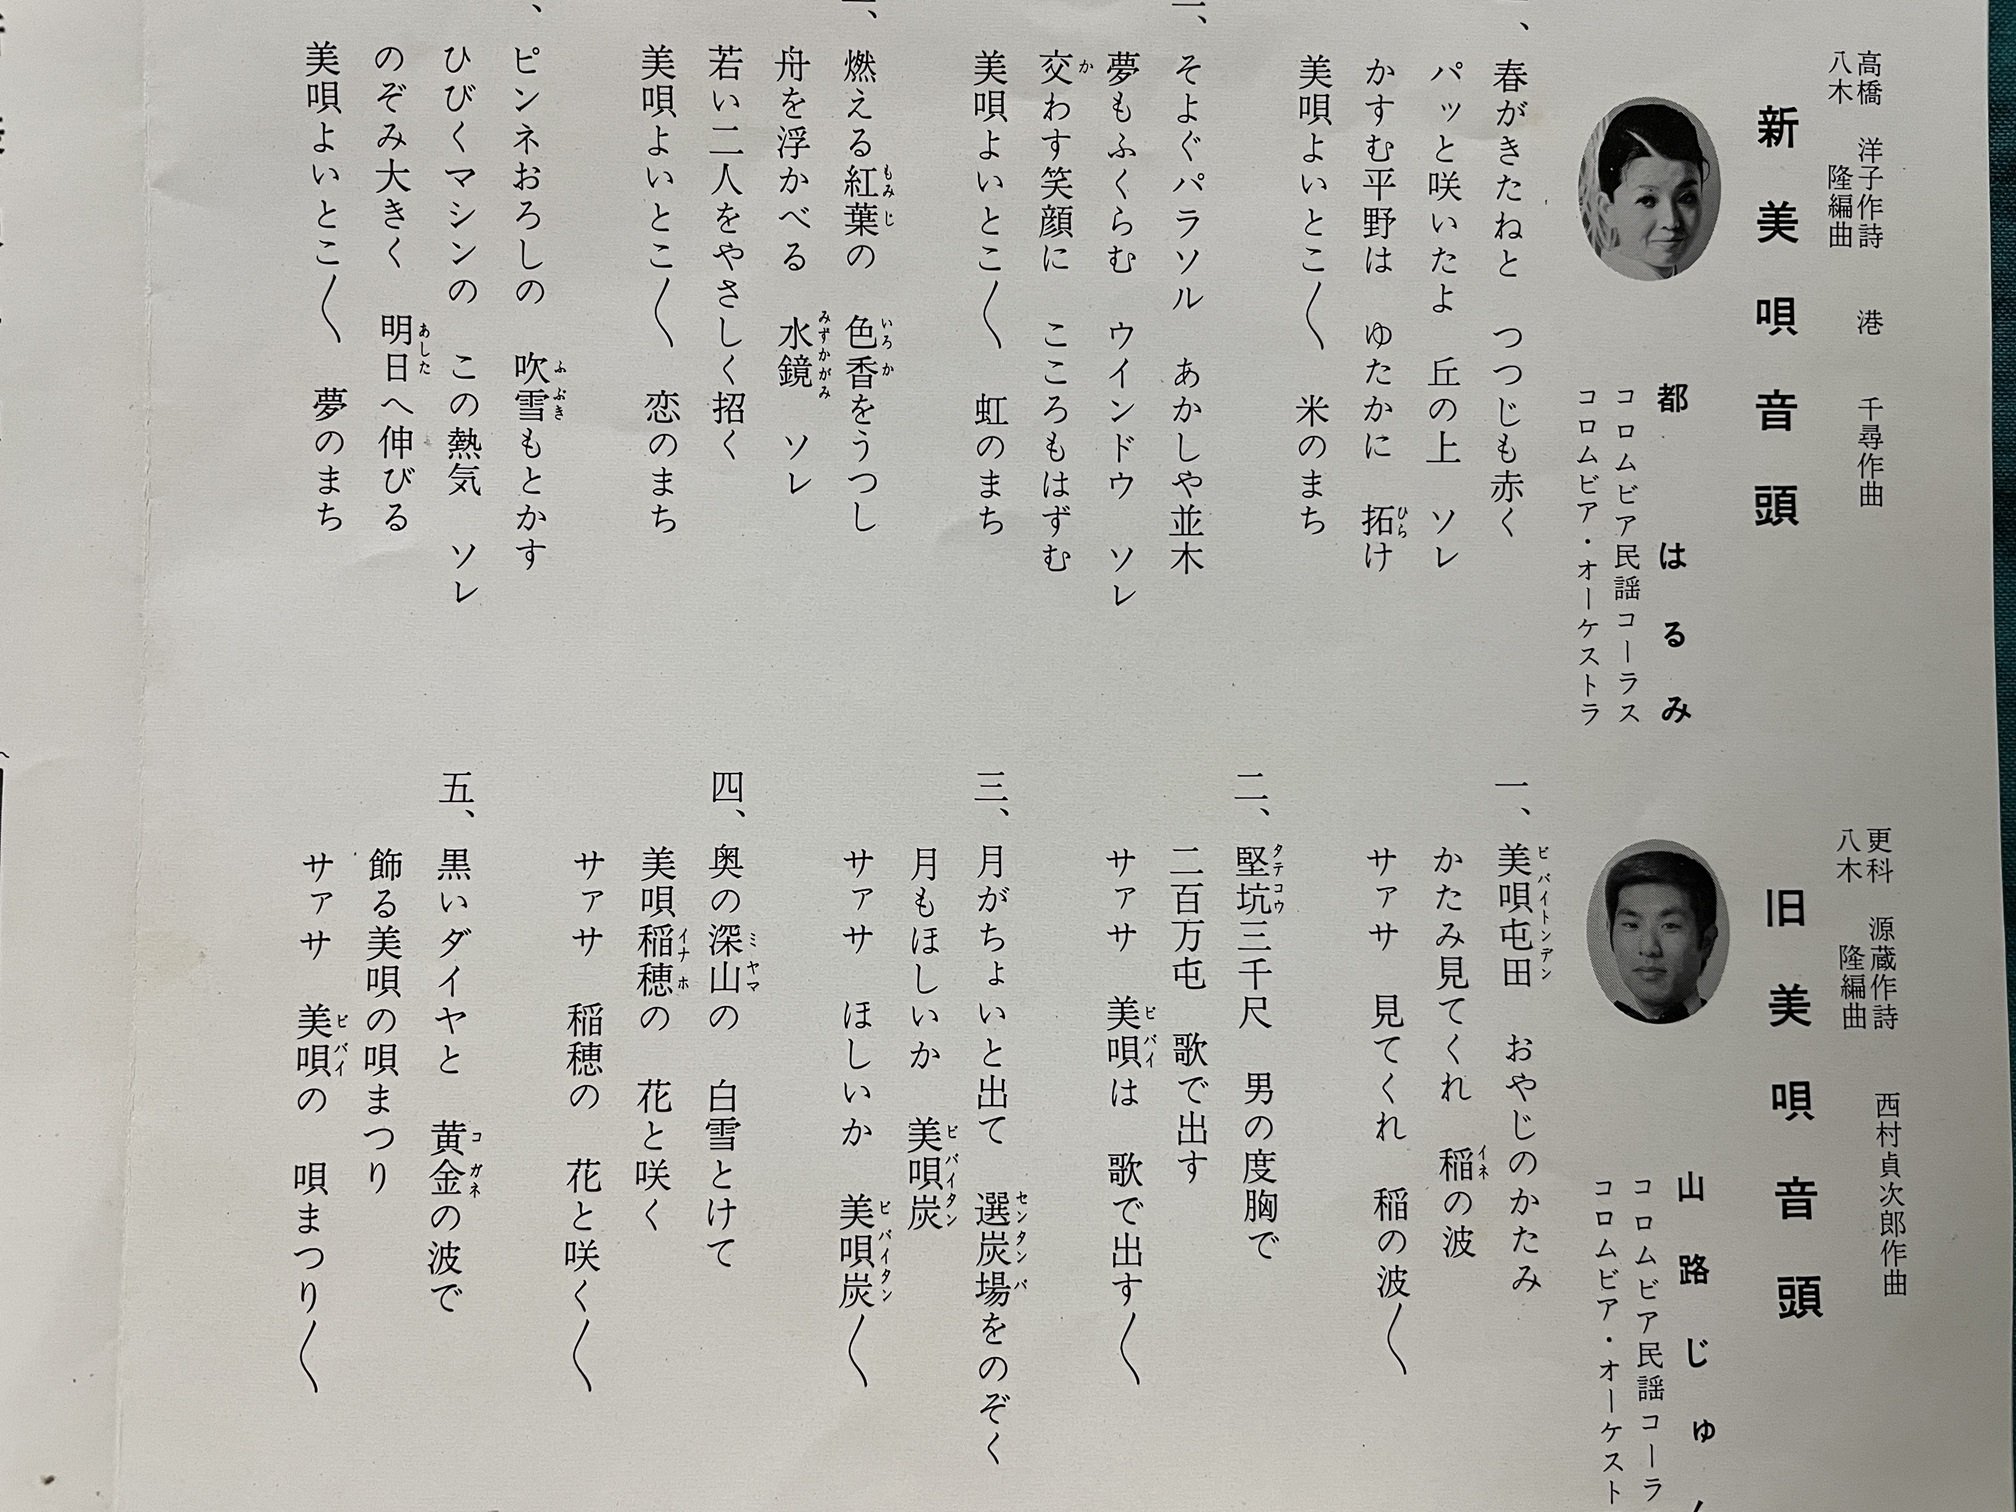 新美唄音頭
高橋 洋子作詩 港 千尋作曲
八木 隆編曲
都はるみ
コロムビア民謡コーラス
コロムビア・オーケストラ
、春がきたねと つつじも赤く
パッと咲いたよ 丘の上 ソレ
かすむ平野は ゆたかに 拓け
美唄よいとこ〱 米のまち
、そよぐパラソル あかしや並木
夢もふくらむ ウインドウ ソレ
交わす笑顔に こころもはずむ
美唄よいとこ〱 虹のまち
、燃える紅葉の 色香をうつし
舟を浮かべる 水鏡 ソレ
若い二人をやさしく招く
美唄よいとこ〱 恋のまち
、ピンネおろしの 吹雪もとかす
ひびくマシンの この熱気 ソレ
のぞみ大きく 明日へ伸びる
美唄よいとこ〱 夢のまち
旧美唄音頭
更科 源蔵作詩 西村貞次郎作曲
八木 隆編曲
山路じゅ
コロムビア民謡コーラ
コロムビア・オーケスト
一、美唄屯田 おやじのかたみ
かたみ見てくれ 稲の波
サァサ 見てくれ 稲の波〱
二、堅坑三千尺 男の度胸で
二百万屯 歌で出す
サァサ 美唄は 歌で出す〱
三、月がちょいと出て 選炭場をのぞく
月もほしいか 美唄炭
サァサ ほしいか 美唄炭〱
四、奥の深山の 白雪とけて
美唄稲穂の 花と咲く
サァサ 稲穂の 花と咲く〱
五、黒いダイヤと 黄金の波で
飾る美唄の唄まつり
サァサ 美唄の 唄まつり〱